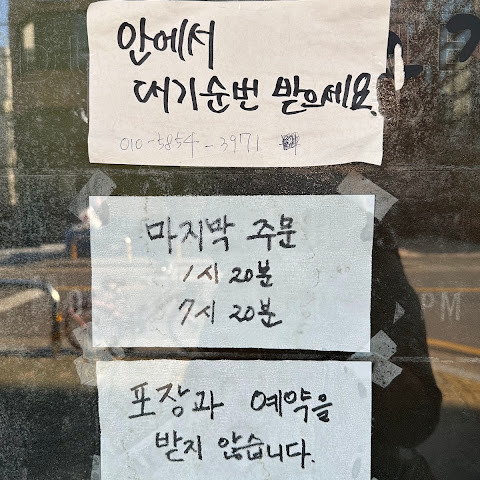 안에서
대기순번 받으세요.
010-5854-3971
마지막 주문
1시 20분
7시 20분
PM
포장과 예약을
받지 않습니다.